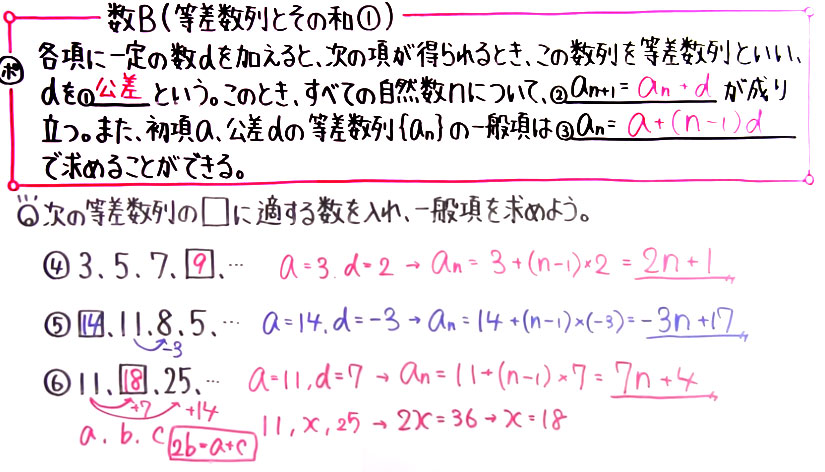 数B(等差数列とその和①)
㋭ 各項に一定の数dを加えると、次の項が得られるとき、この数列を等差数列といい、
dを①公差という。このとき、すべての自然数nについて、②an+1=an+dが成り
立つ。また、初項a、公差dの等差数列{an}の一般項は③an=a+(n-1)d
で求めることができる。
次の等差数列の□に適する数を入れ、一般項を求めよう。
④3、5、7、9、… a=3.d=2→an=3+(n-1)×2=2n+1
⑤14、11、8、5、… a=14、d=-3→an=14+(n-1)×(-3)=-3n+17
-3
⑥11、18、25、… a=11,d=7→an=11+(n-1)×7=7n+4
+7 +14
a、b、c 2b=a+c 11,x,25→2x=36→x=18